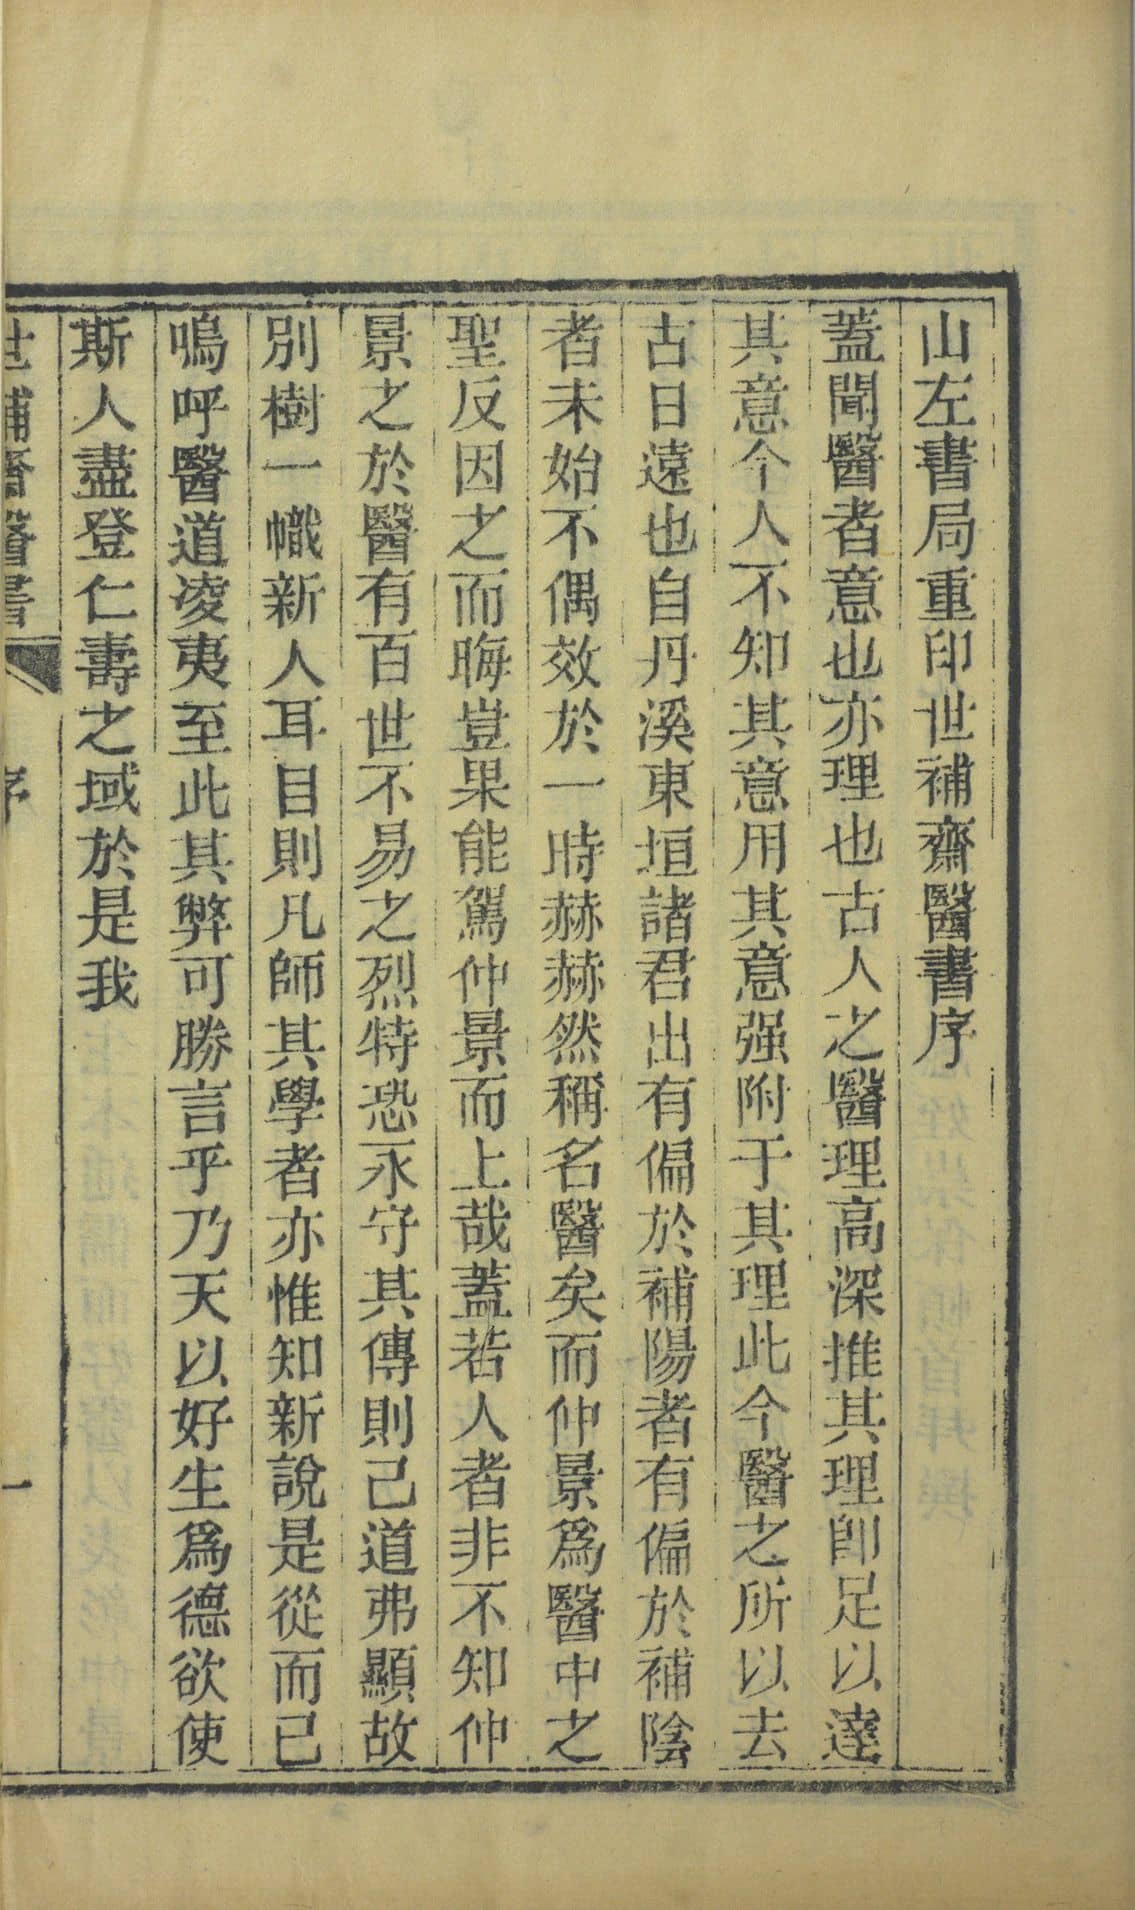 山左書局重印世補齋醫書序
蓋聞醫者意也亦理也古人之醫理高深推其理卽足以達
其意今人不知其意用其意强附于其理此今醫之所以去
古日遠也自丹溪東垣諸君出有偏於補陽者有偏於補陰
者未始不偶效於一時赫赫然稱名醫矣而仲景爲醫中之
聖反因之而晦豈果能駕仲景而上哉蓋若人者非不知仲
景之於醫有百世不易之烈特恐永守其傳則己道弗顯故
別樹一幟新人耳目則凡師其學者亦惟知新說是從而已
嗚呼醫道凌夷至此其弊可勝言乎乃天以好生爲德欲使
斯人盡登仁壽之域於是我
世補齋醫書 序 一